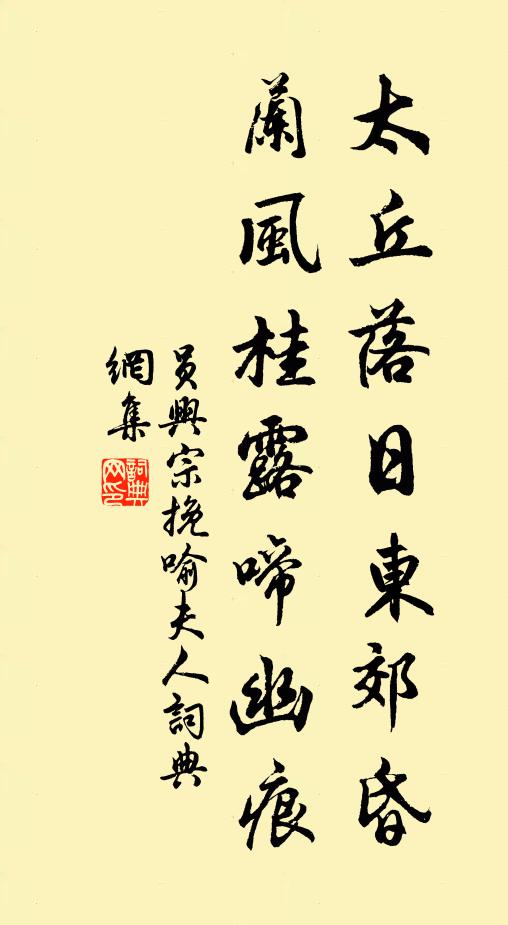 太丘落日東郊昏
蘭風桂露啼幽痕
員興宗挽喻夫人詞典
網集
詞典
网印